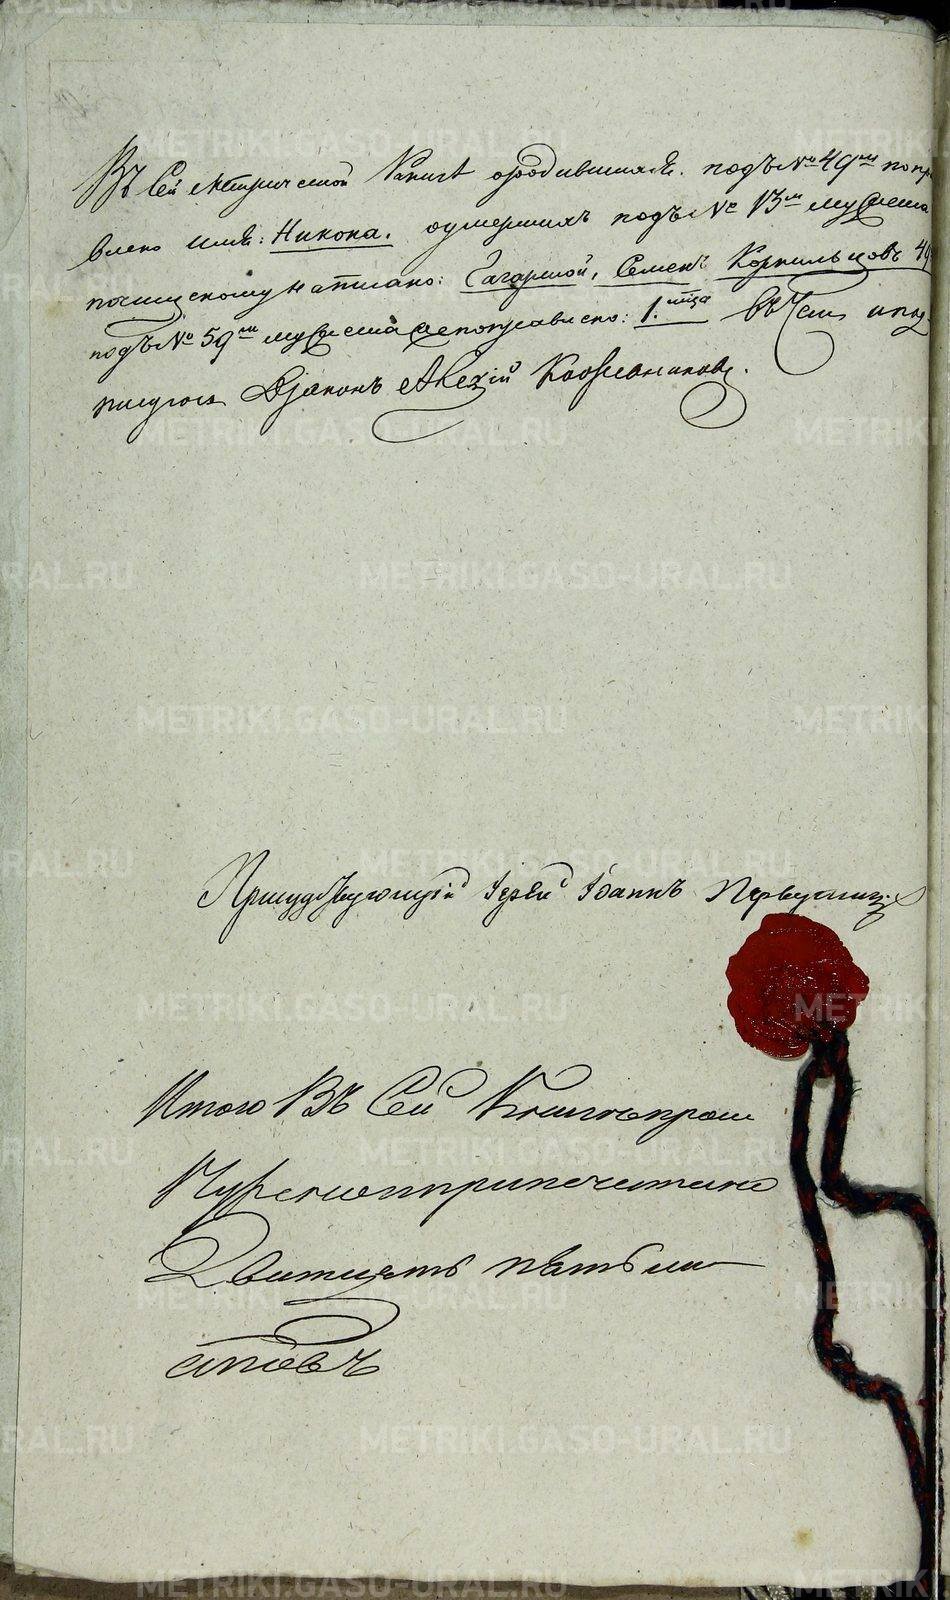 Въ сей метрической книгѣ ородившихся. подъ № 49мъ попра
влено имя: Никона. оумершихъ подъ № 13мъ мужеска
почищеному написано: Семенъ Корнильцовъ
подъ № 59мъ мужеска поправлено: 1. мца въ чем и под
писуюсь Дjаконъ Алекзій Кожевниковъ.
Присудствующій Іерей Іоаннъ
Итого въ сей книгѣ прош
нурено и припечатано
Дватцеть пять ли
стовъ
METRIKI.GASO-URAL.RU